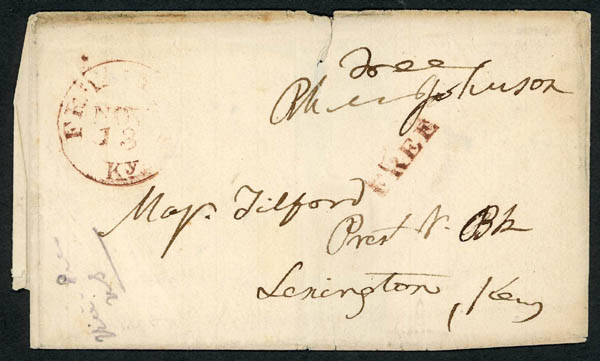 Free
Rh M Johnson
FREE
NOV
13
KY
Maj. Tilford
Prest N. Bk
Lexington, Keny